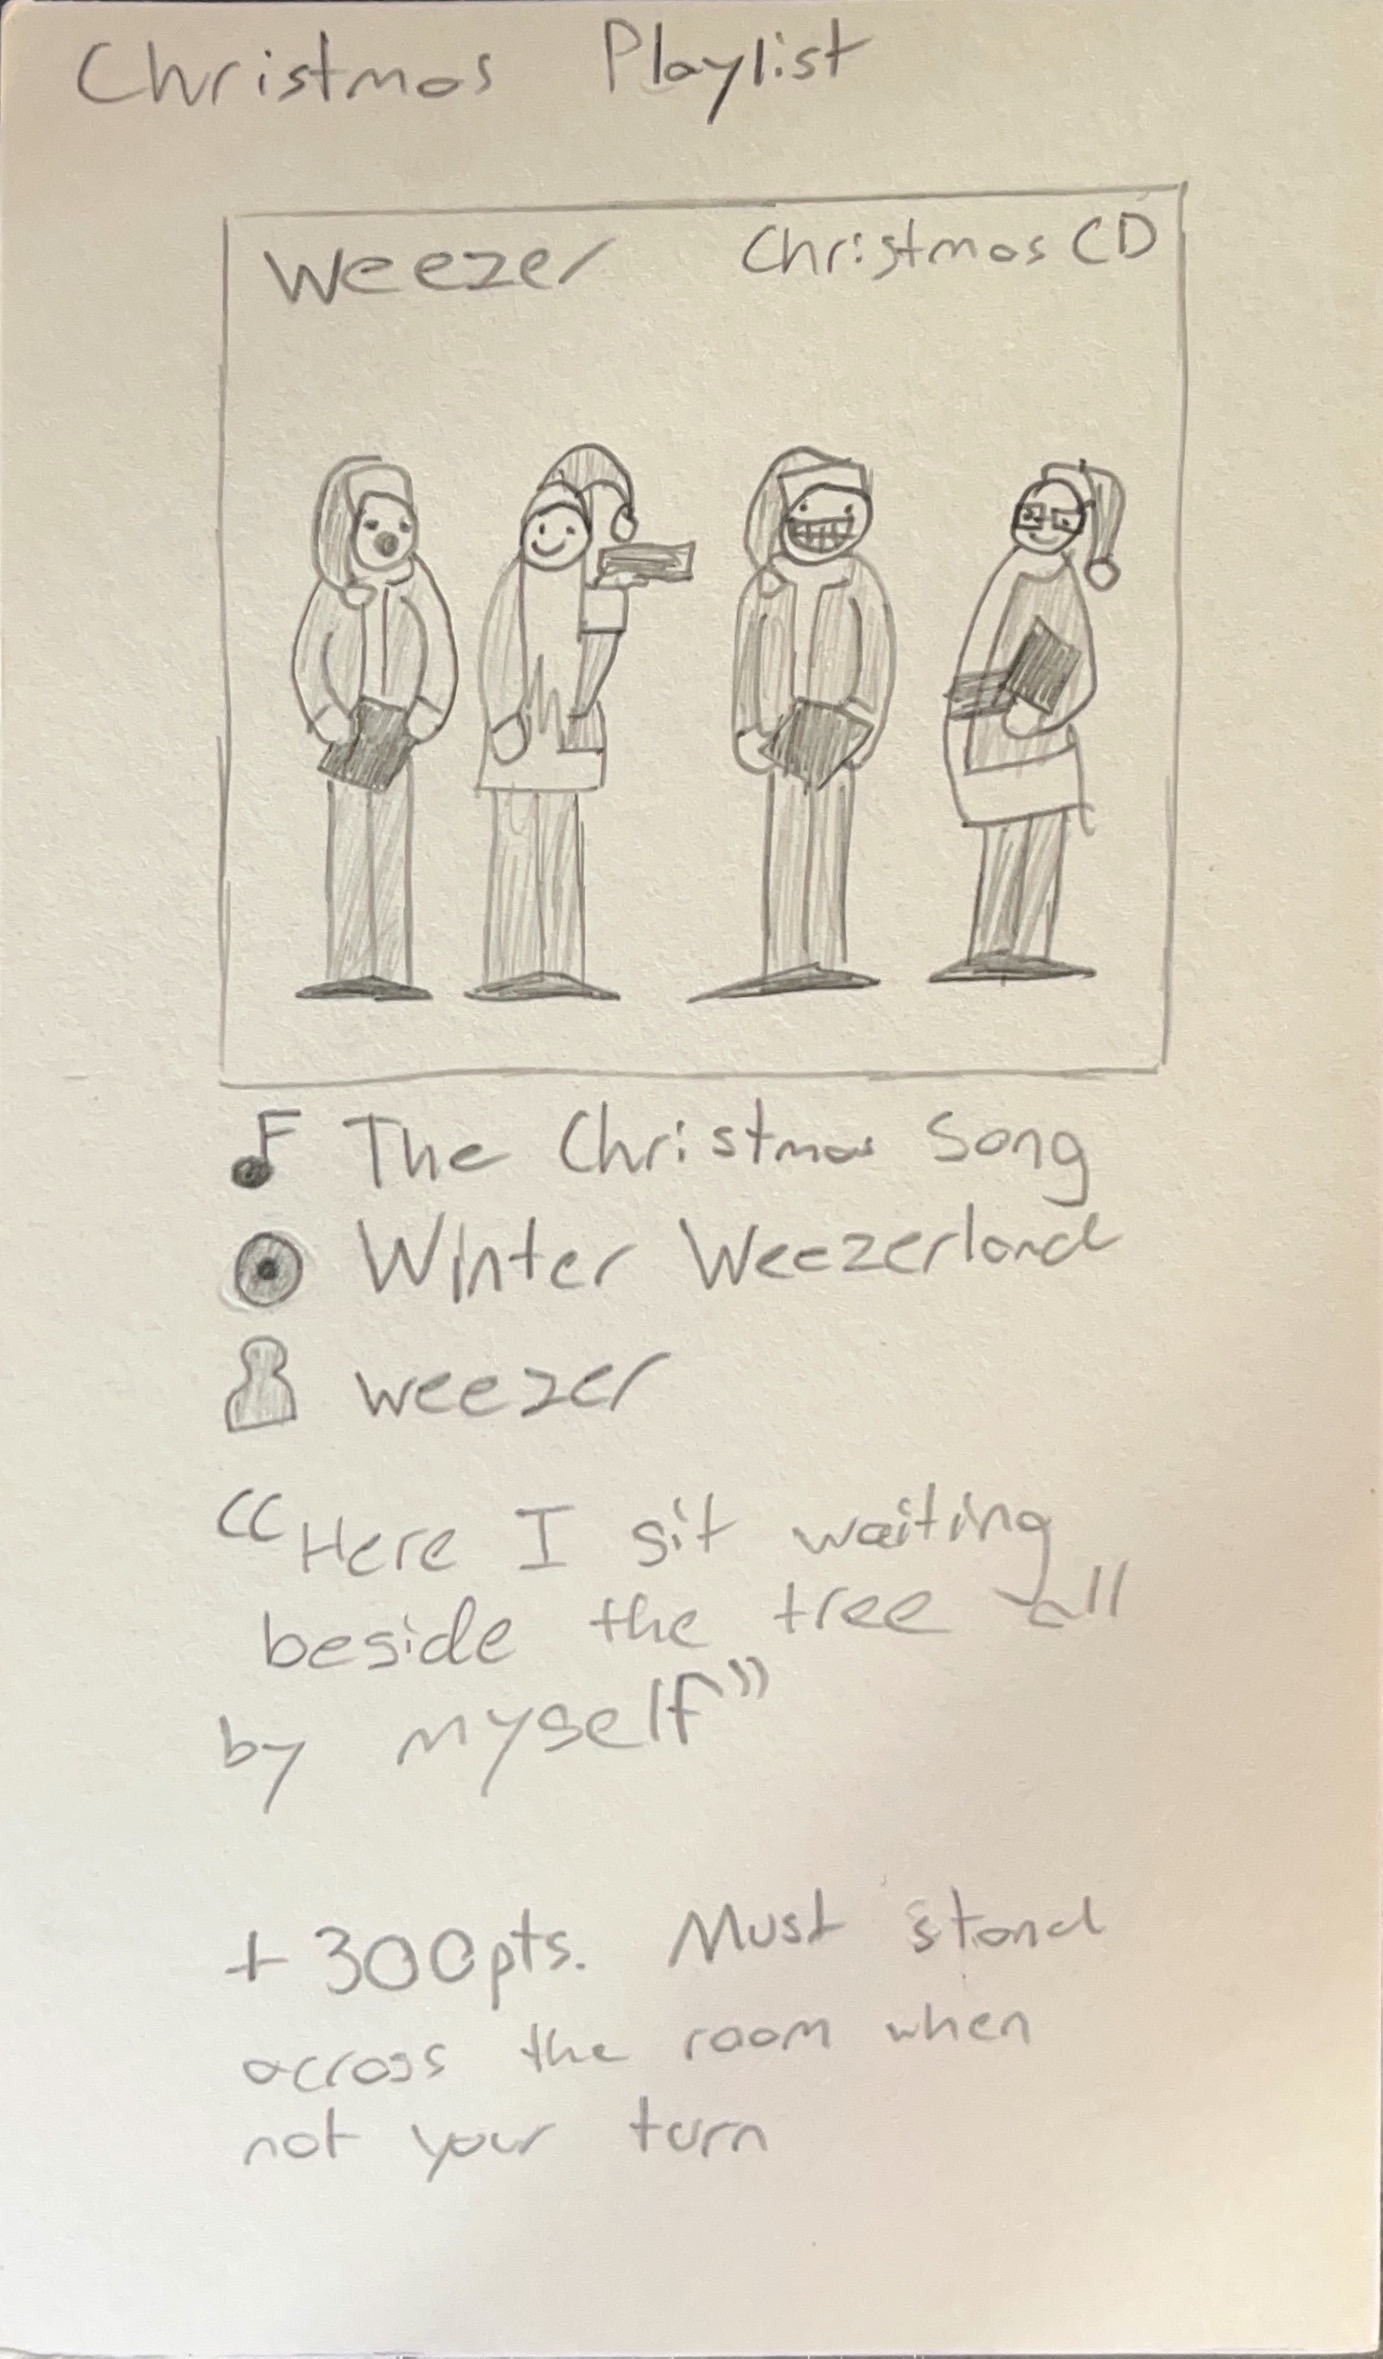 Christmas Playlist
Weezer Christmas CD
The Christmas Song
Winter Weezerland
weezer
“Here I sit waiting
beside the tree all
by myself”
+300pts. Must stand
across the room when
not your turn